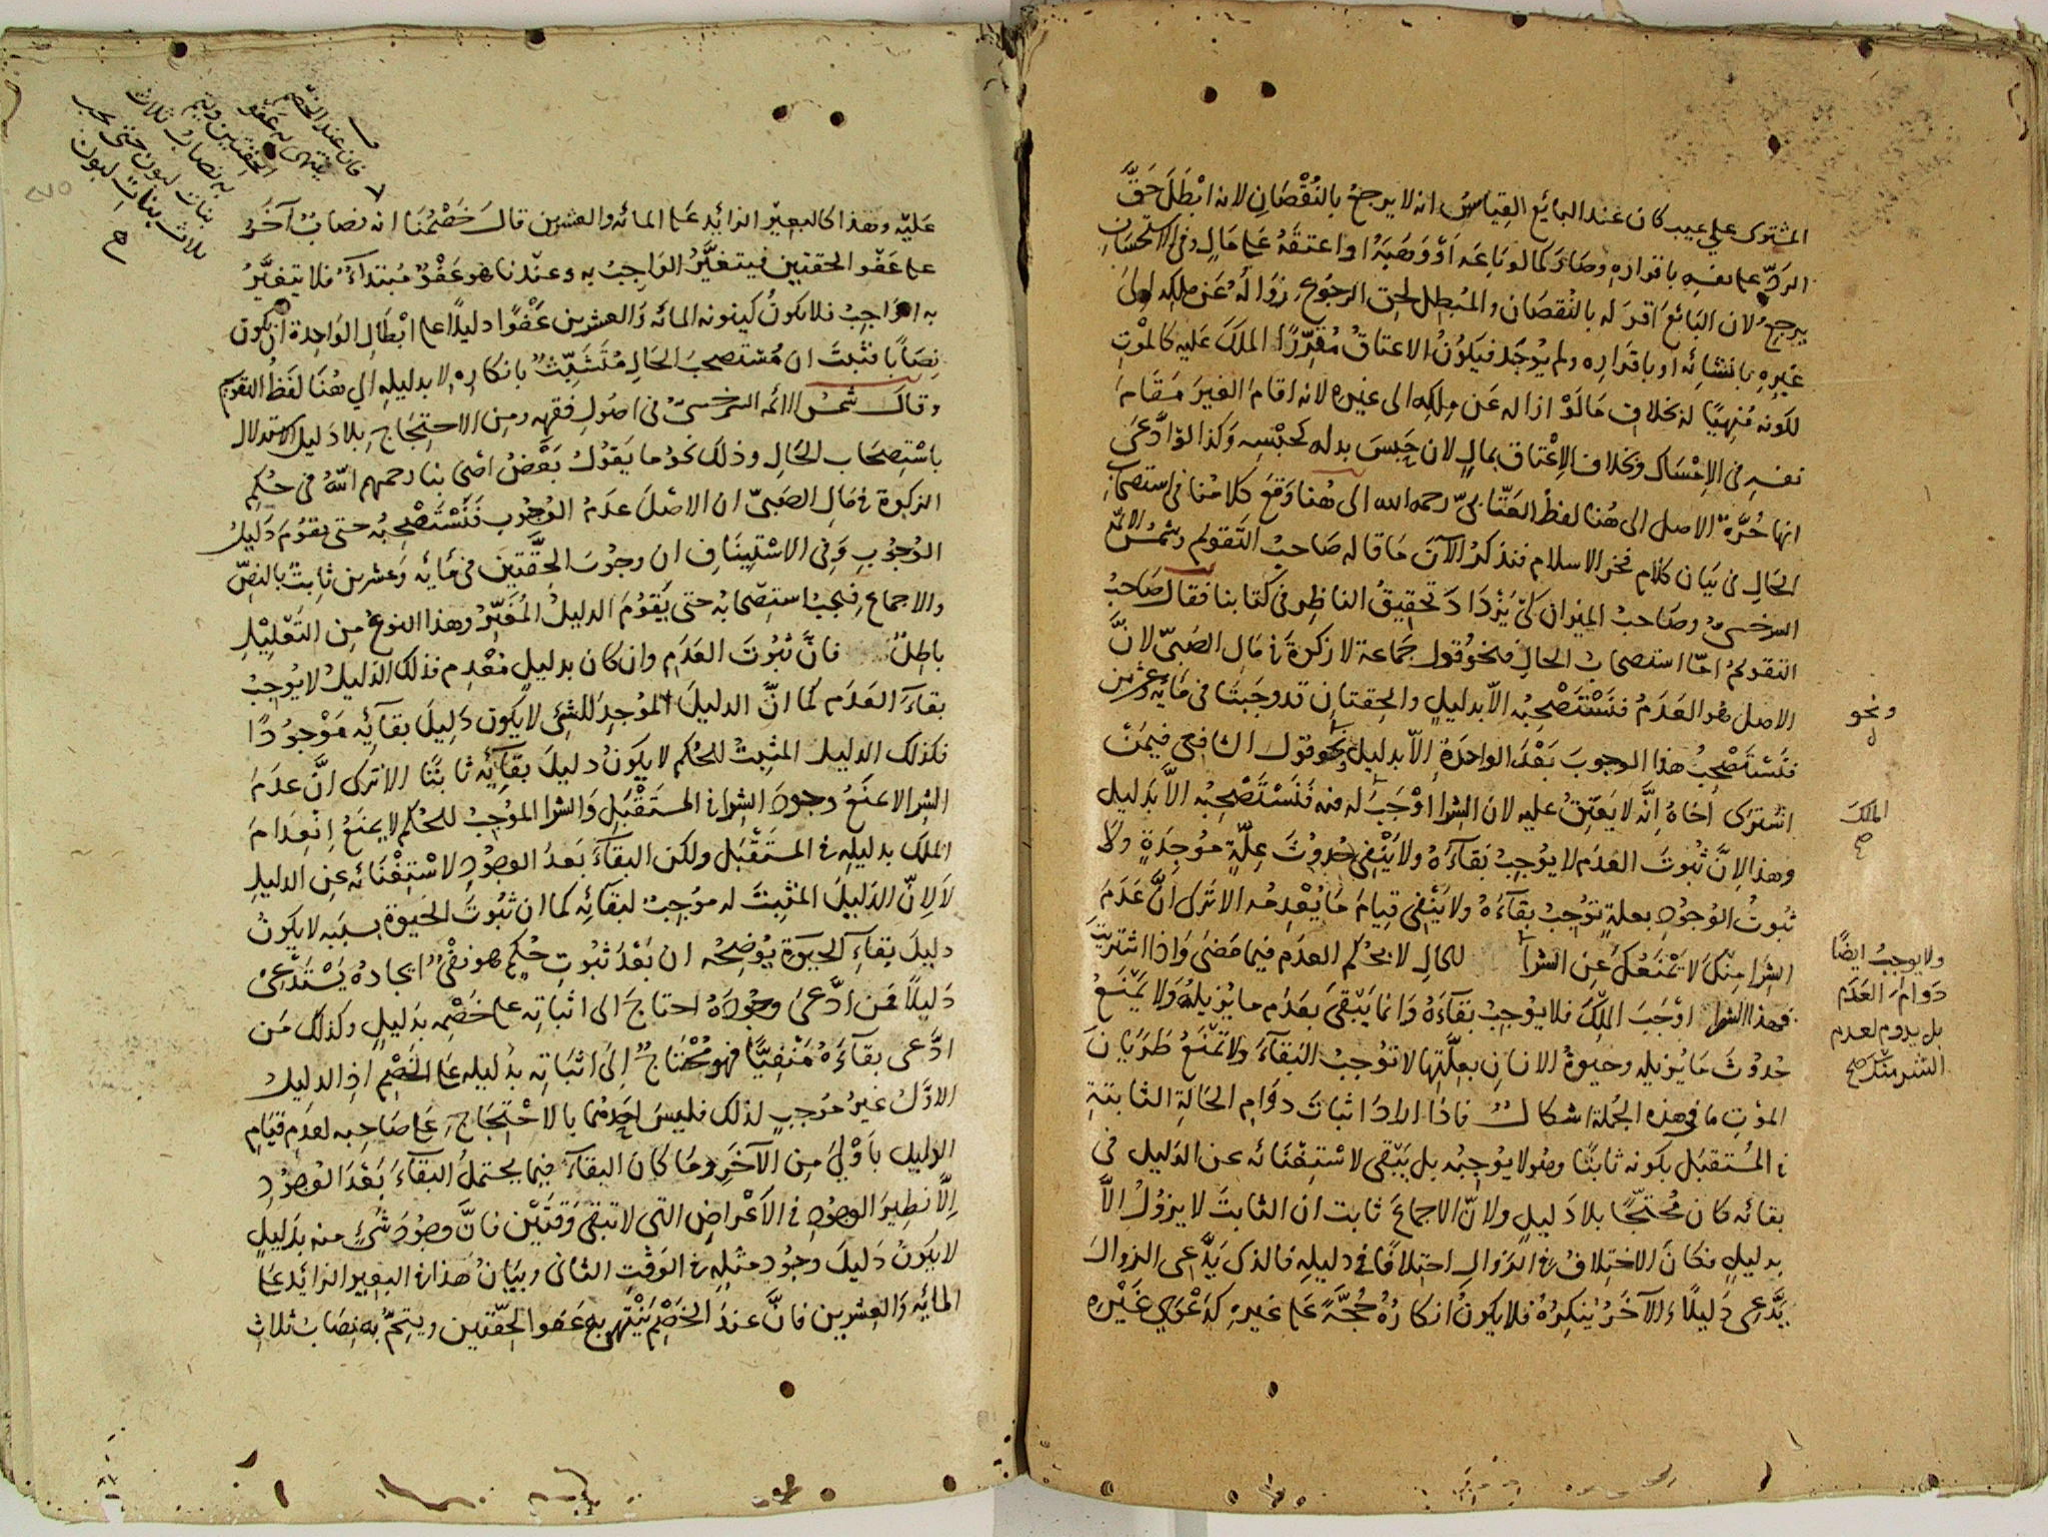 المشترى على عيب كان عند البائع القياس انه لا يرجع بالنُقْصَانِ لانه ابْطَلَ حَقَّ
الردّ على نفسِه باقرارِه وصارَ كما لو بَاعَه اَوْ وَهَبَهُ او اعتقَهُ عَلى مَالٍ وفى الاستحْسَانِ
يرجعُ لان البَائعَ اَقرَّ له بالنُقصَانِ والمُبْطِل لحق الرجُوعِ زوَالُهُ عَنْ مِلكِه الى
غَيرِهِ بانشائِه او باقرَارِه ولم يُوجَد فيَكُونُ الاعتاقُ مُقَرِّرًا الملكَ عَليه كالموْتِ
لكونه مُنهِيًا له بخلافِ مَا لَوْ ازاله عَن مِلكِه الى غيرِه لانه اقامَ الغيرَ مَقَامَ
نفسِه فى الاِمْسَاكِ وبخلاف الاِعْتاق بمالٍ لان حَبسَ بدله كحَبْسِه وَكذا لو ادَّعَى
انها حُرَّة الاصل الى هُنا لفظُ العَتّابىّ رحمه الله الى هُنا وَقعَ كلامُنا فى استصحَابِ
الحَالِ فى بَيان كلام فخر الاسلام فنذكُر الآنَ مَا قاله صَاحِبُ التَقويم وشمسُ الائمّة
السرخسىُّ وصَاحبُ الميزان كَىْ يَزْدَادَ تحقيقُ الناظِر فى كتابنا فقالَ صَاحبُ
التقويم امّا استصحابُ الحالِ فنحوُ قول جَماعة لا زكوةَ فى مَالِ الصَبىّ لانَّ
الاصل هو العَدَمُ فنَسْتَصْحِبُه اِلاّ بدليلٍ والحِقتانِ قد وجَبتَا فى مَائة وعشرين
فنَسْتَصْحِبُ هذا الوجوبَ بَعْدَ الواحدَةِ اِلاّ بدليلٍ ونحو قول الشافعى فيمَنْ
اشترَى اَخَاهُ اِنَّه لا يَعتِقُ عليه لان الشِرا اَوْجَبَ له منه فنَسْتَصْحِبُه الاَّ بدَليلٍ
وهذا لاِنَّ ثُبوتَ العَدَم لا يوُجِبُ بَقَآءَهُ ولا يَنْفِى حُدوُثَ عِلّةٍ موُجِدَةٍ ولا
ثبُوتُ الوُجوُدِ بعلةٍ توُجِبُ بقَآءَهُ ولا يَنْفِى قيامَ مَا يُعْدِمُه الا تَرَى اَنَّ عَدَمَ
الشِرَا مِنّكَ لا يَمْنَعُكَ عَن الشرا للحالِ لا بحُكم العدَم فيمَا مَضَى وَاذا اشتريتَ
فهذا الشرا اَوْجَبَ المِلكَ فلا يوُجِبُ بقَآءَهُ وَانما يَبْقَى بعَدَم ما يُزيلُه وَلا يَمْنَعُ
حُدوُثَ مَا يُزيله وحيوةُ الانسَانِ بعِلّتِها لا توُجبُ البَقَآءَ ولا تمْنَعُ طَرَيَانَ
الموْتِ ما فى هذه الجُملة اشكالٌ فاذا ارادَ اثباتَ دوَامِ الحَالَةِ الثابتةِ
فى المُستقبَل بكونه ثابتًا وهو لا يوُجِبُه بل يَبْقى لاسْتِغْنَائه عن الدَليل فى
بقائه كان مُحْتجًّا بلا دَليلٍ ولانّ الاجماعَ ثابت ان الثابتَ لا يزوُلُ الاَّ
بدليلٍ فكانَ الاختِلافُ فى الزَوالِ اختِلافًا فى دليلِه فالذى يَدَّعى الزوالَ
يَدَّعِى دَليلًا وَالآخَرُ يُنكِرُهُ فلا يكونُ انكارُهُ حُجَّةً عَلى غيرِه كدَعْوَى غَيْرِه
ونحو
الملكَ
صح
ولا يوجبُ ايضًا
دَوامَ العَدَم
بل يدوم لعدم
الشرا منك صح
عَليْه وهذا كالبعِيْرِ الزائِد عَلى المائه والعشرين قالَ خَصْمُنَا انه نصابٌ آخَرُ
على عَفْوِ الحقتين فيتغيَّرُ الوَاجِبُ به وعنْدنا هو عَفْوٌ مُبْتدَأٌ فلا يتغيَّرُ
به الوَاجِبُ فلا يكونُ كينونه المائه وَالعشرين عَفْوًا دليلًا على ابْطَالِ الوَاحِدةِ ان يكون
نِصَابًا فثبتَ ان مُسْتصحِبَ الحَالِ مُتَشَبِّثٌ بانكارِه لا بدليلِه الى هُنَا لفظُ التقويم
وقالَ شمسُ الائمه السرخسىّ فى اصُولِ فقهِه ومِن الاحتِجَاجِ بِلا دَليل الاستدلال
باسْتِصحَاب الحَالِ وذلكَ نحوُ ما يقوُلُ بَعْضُ اصْحابنا رحمهم اللهُ فى حُكمِ
الزكوة فى مَالِ الصَبىّ ان الاصْلَ عدَمُ الوُجوُبِ فنَسْتَصْحِبُه حتى يقوُمَ دَليلُ
الوُجوُبِ وَفى الاسْتِينَافِ ان وجوُبَ الحِقّتينِ فى مَائه وَعشرين ثابتٌ بالنصّ
والاجماعِ فيَجبُ استصحَابُه حتى يَقوُمَ الدليلُ المُغَيِّرُ وهذا النوعُ مِن التَعْليْلِ
باطِلٌ فانَّ ثبُوتَ العَدَمِ وان كان بدليلٍ مُعْدِمٍ فذلك الدَليلُ لا يوُجِبُ
بقَآءَ العَدَم كما انَّ الدليلَ الموُجِدَ للشئ لا يكون دَليلَ بقآئِه مَوْجوُدًا
فكذلك الدليل المثبِتُ للحُكم لا يكونُ دليلَ بقآئِه ثابتًا الا ترَى انَّ عدَمَ
الشرا لا يمنَعُ وجودَ الشِرا فى المستَقْبَلِ وَالشرا الموُجِبُ للحُكم لا يمنَعُ اِنْعِدَامَ
الملك بدليلِه فى المستَقْبَل ولكن البقآءَ بَعدَ الوجوُدِ لاسْتِغْنَائه عن الدليلِ
لاَ لاِنّ الدَليلَ المُثْبِتَ له موُجِبٌ لبقآئِه كما ان ثبُوتَ الحَيوة بسبَبِه لا يكونُ
دليلَ بقآءِ الحَيوةِ يوُضِحُه ان بَعْدَ ثبُوتِ حُكمٍ هو نفْىٌ ايجادُهُ يَسْتَدْعِى
دَليلًا فمن ادَّعَى وجُودَهُ احتاجَ الى اثباتِه على خَصْمِه بدَليلٍ وكذلك مَن
ادَّعى بقآءَهُ مَنْفِيًّا فهو مُحْتاجٌ اِلى اثبَاتِه بدَليلِه عَلى الخَصْمِ اذِ الدليلُ
الاوَّلُ غيرُ موُجبٍ لذلك فليسَ احَدهُما بالاحْتِجَاجِ عَلى صَاحِبِه لعدَمِ قيَامِ
الدليلِ باَوْلى مِن الآخَرِ وما كانَ البقآء فيما يحتملُ البقآءَ بَعْدَ الوُجوُدِ
اِلاَّ نظِيرَ الوجوُدِ فى الاَعْراضِ التى لا تبقى وَقتَيْن فانَّ وجوُدَ شئٍ منه بدَليلٍ
لا يكوُنُ دَليلَ وجُودِ مثلِه فى الوَقتِ الثانى وبَيَانُ هذا فى البعير الزائدِ عَلى
المائَةِ وَالعِشرين فانَّ عندَ الخَصْمِ يَنْتَهِى به عَفو الحِقّتين ويَتِمُّ بهِ نِصَابُ ثلاثِ
فان عند الخَصْم
ينتهى به عَفو
الحِقّتين ويتم
به نصابُ ثلاث
بنات لبون حتى يجب
ثلاث بنات لبون
صح